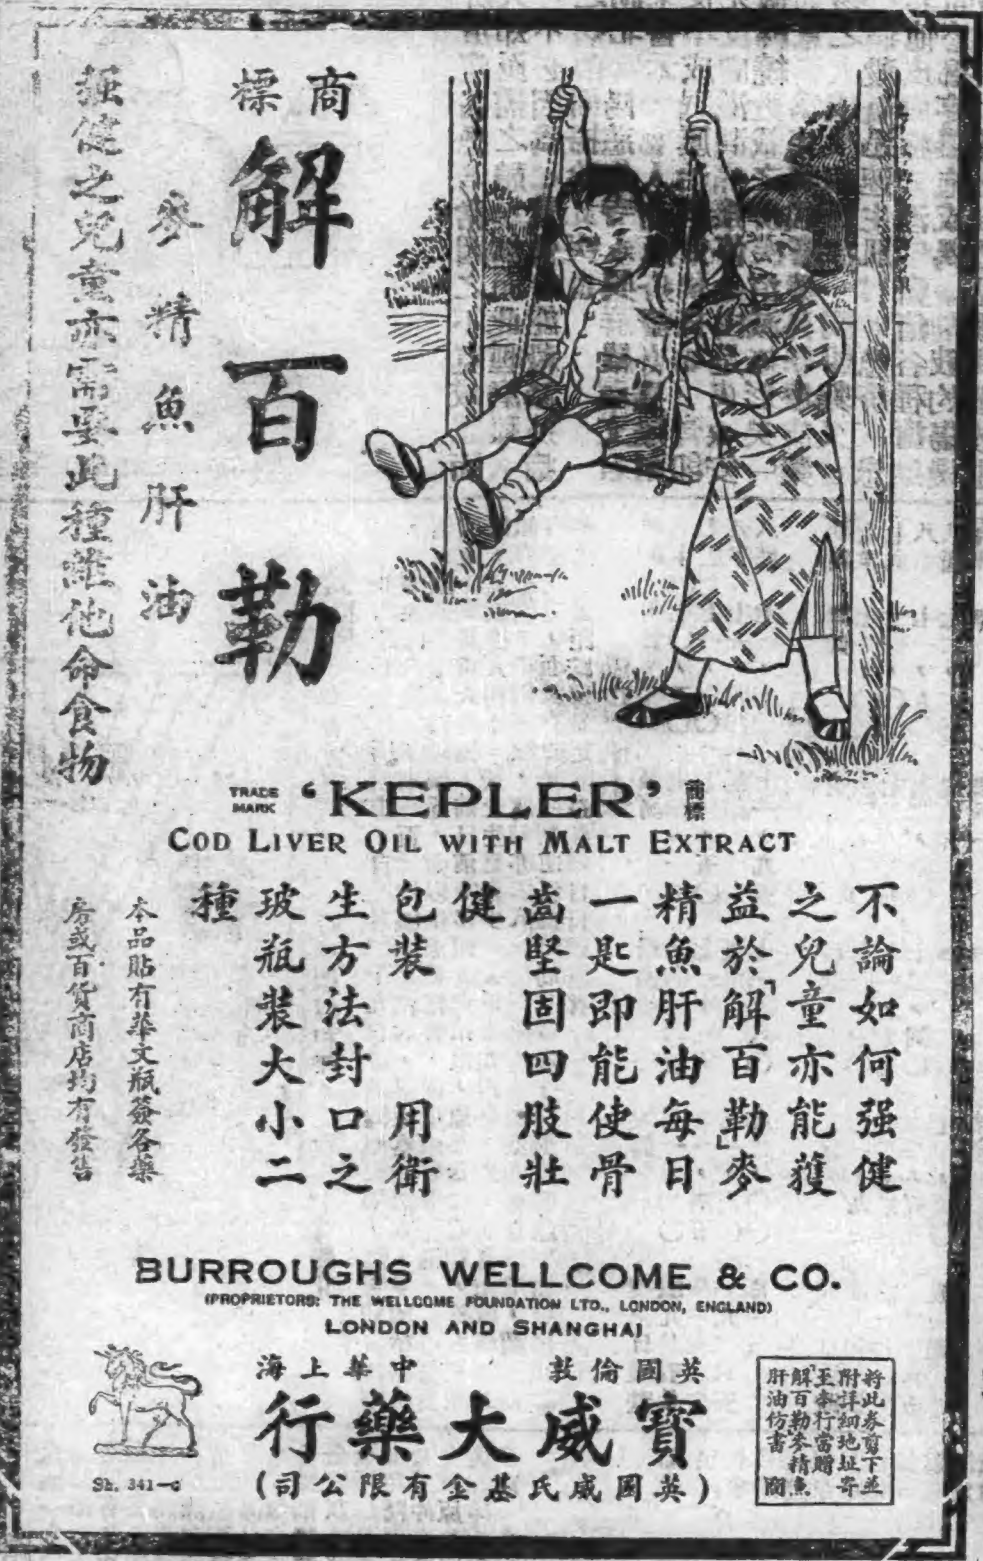 商標
解百勒
麥精魚肝油
强健之兒童亦需要此種維他命食物
TRADE MARK 'KEPLER' 商標
COD LIVER OIL WITH MALT EXTRACT
不論如何强健
之兒童亦能獲
益於「解百勒」麥
精魚肝油每日
一匙即能使骨
齒堅固四肢壯
健
包裝 用衛
生方法封口之
玻瓶裝大小二
種
本品貼有華文瓶簽各藥
房或百貨商店均有發售
BURROUGHS WELLCOME & CO.
(PROPRIETORS: THE WELLCOME FOUNDATION LTD., LONDON, ENGLAND)
LONDON AND SHANGHAI
英國倫敦 中華上海
寶威大藥行
(英國威氏基金有限公司)
Sh. 341-c
將此券剪下並
附詳細地址寄
至本行當贈
「解百勒」麥精魚
肝油仿書 閱